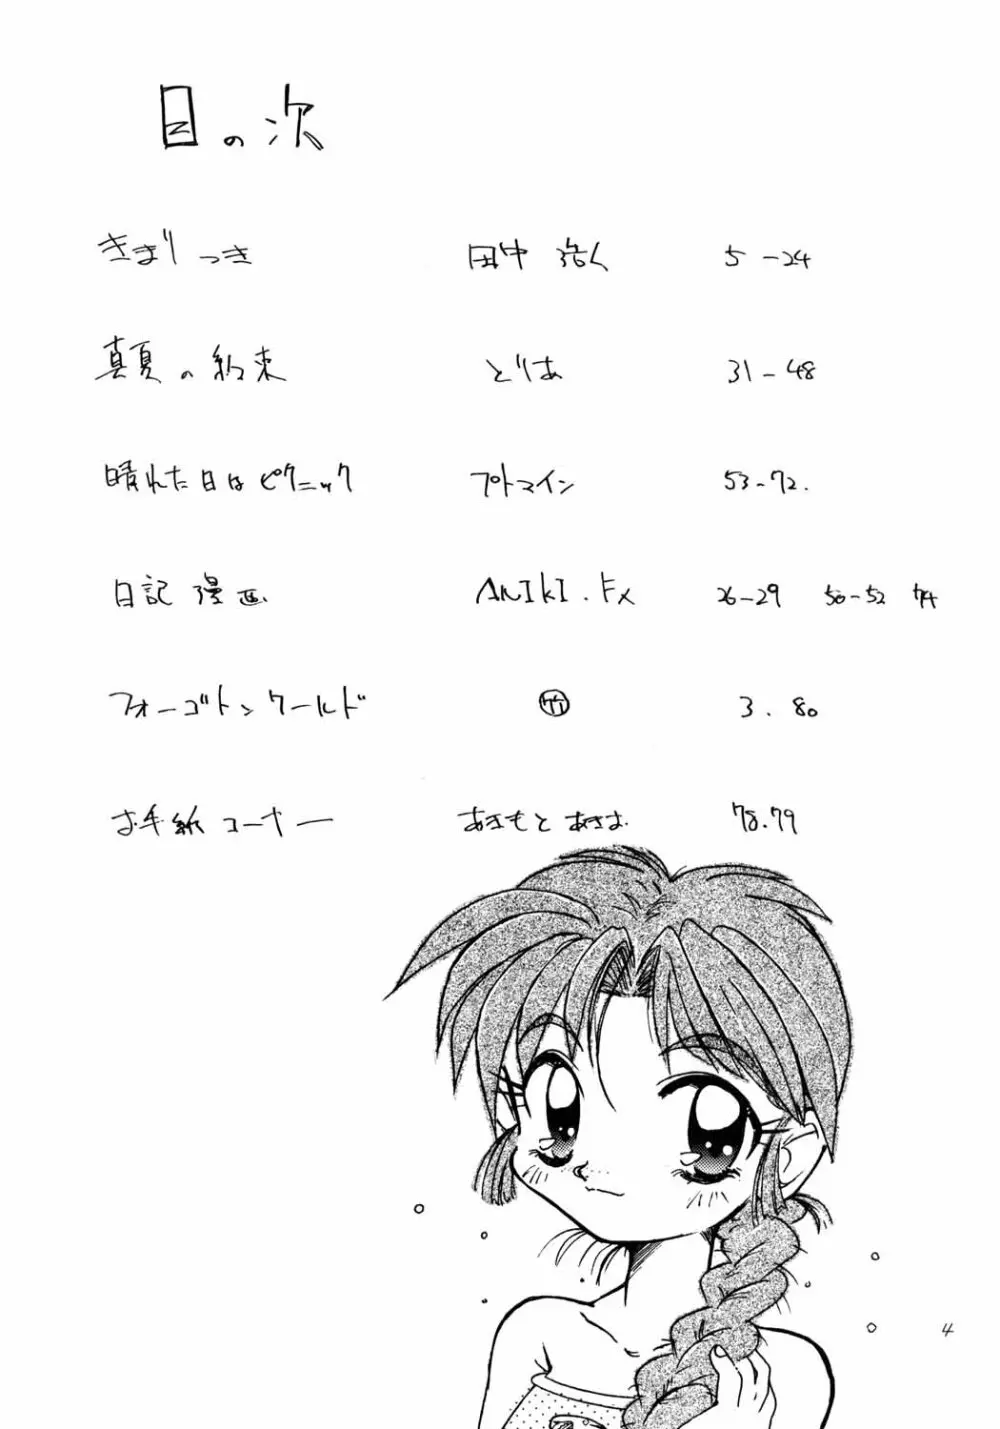 目の次
きまりつき 田中 浩人 5-24
真夏の約束 とりあ 31-48
晴れた日はピクニック プトマイン 53-72.
日記漫画 ANIKI.Fx 26-29 50-52 74
フォーゴトンワールド 竹 3.80
お手紙コーナー あきもとあきお 78.79
4